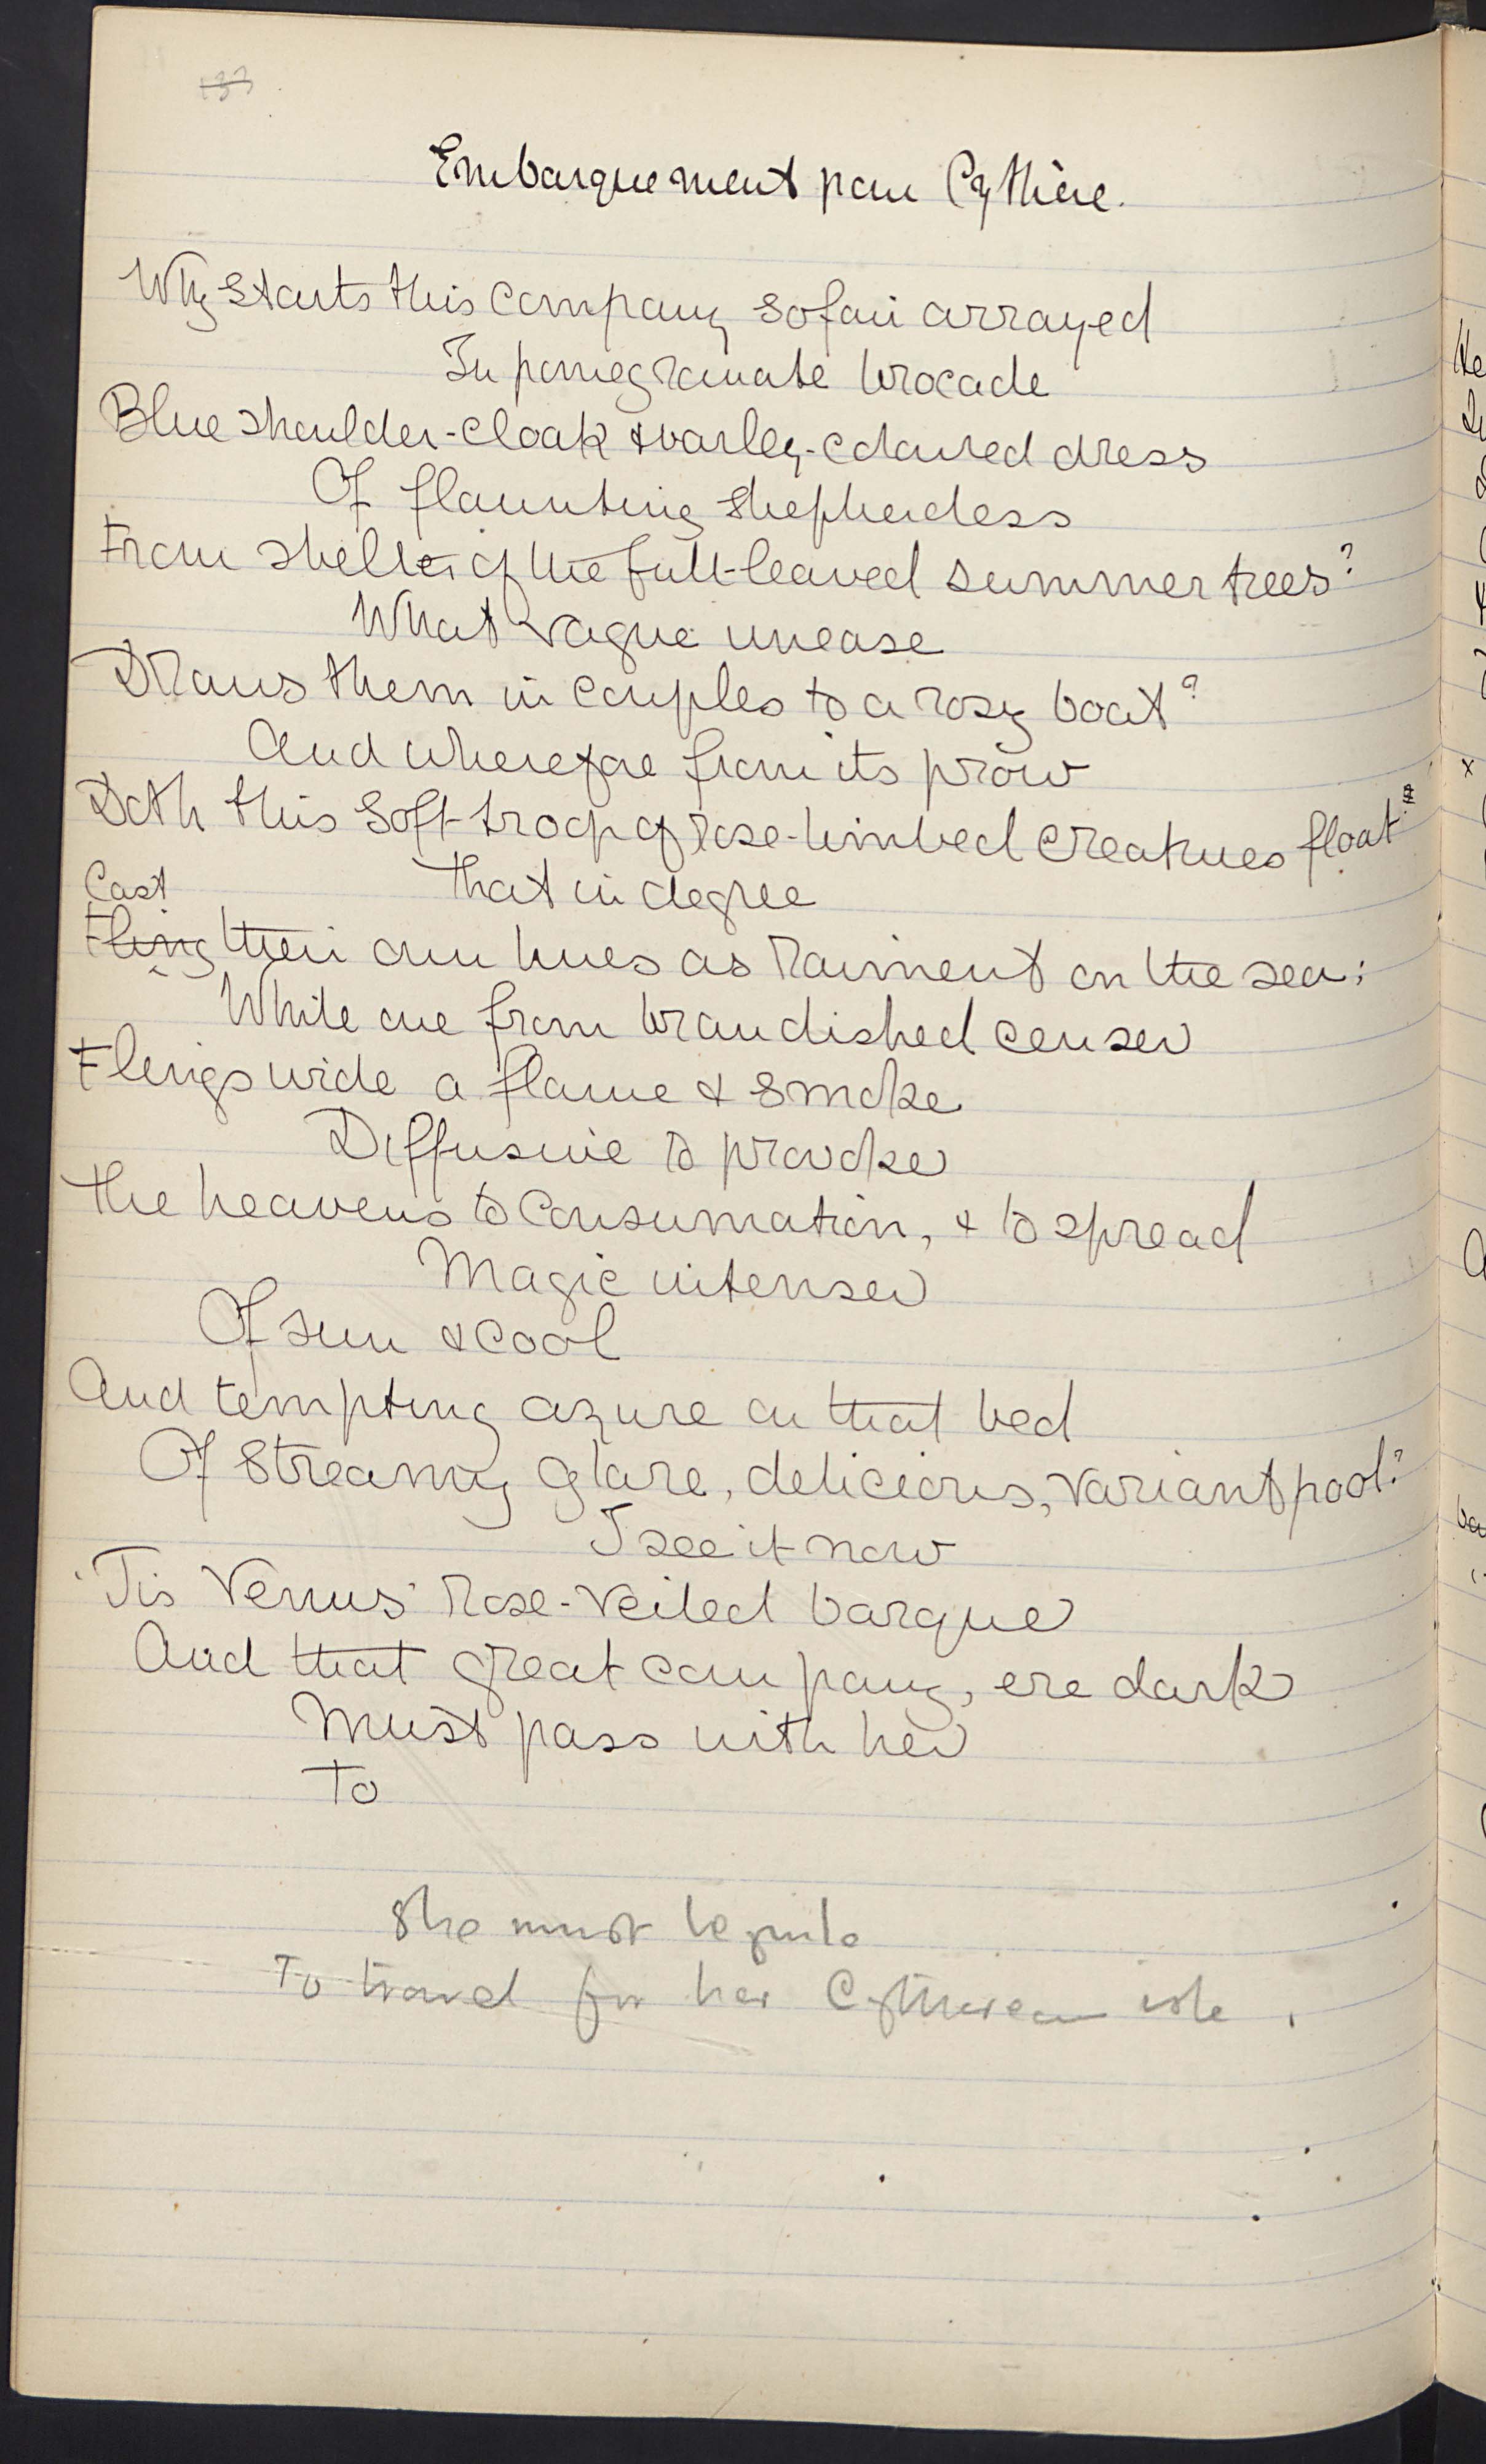 133
Embarquement pour Cythère.
Why starts this company so fair arrayed
In pomegranate brocade
Blue shoulder-cloak & barley-coloured dress
Of flaunting shepherdess
From shelter of the full-leaved summer trees?
What vague unease
Draws them in couples to a rosy boat?
And wherefore from its prow
Doth this soft troop of rose-limbed creatures float
That in degree
Cast
Fling their own hues as raiment on the sea;
While one from brandished censer
Flings wide a flame & smoke
Diffusive to provoke
The heavens to consumation, & to spread
Magic intenser
Of sun & cool
And tempting azure on that bed
Of streamy glare, delicious, variant pool?
I see it now
'Tis Venus' rose-veiled barque
And that great company, ere dark
Must pass with her
To
She must beguile
To travel for her Cytherean isle.